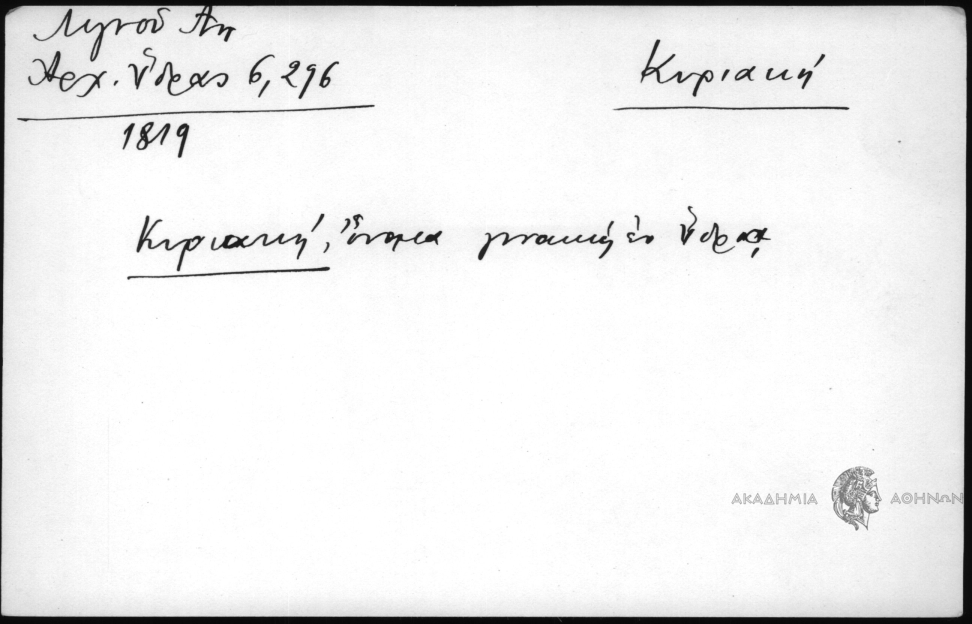 Λιγνοῦ Ἀπ
Ἀρχ. Ὕδρας 6, 296
1819
Κυριακή
Κυριακή, ὄνομα γυναικὸς ἐν Ὕδρᾳ
ΑΚΑΔΗΜΙΑ ΑΘΗΝΩΝ